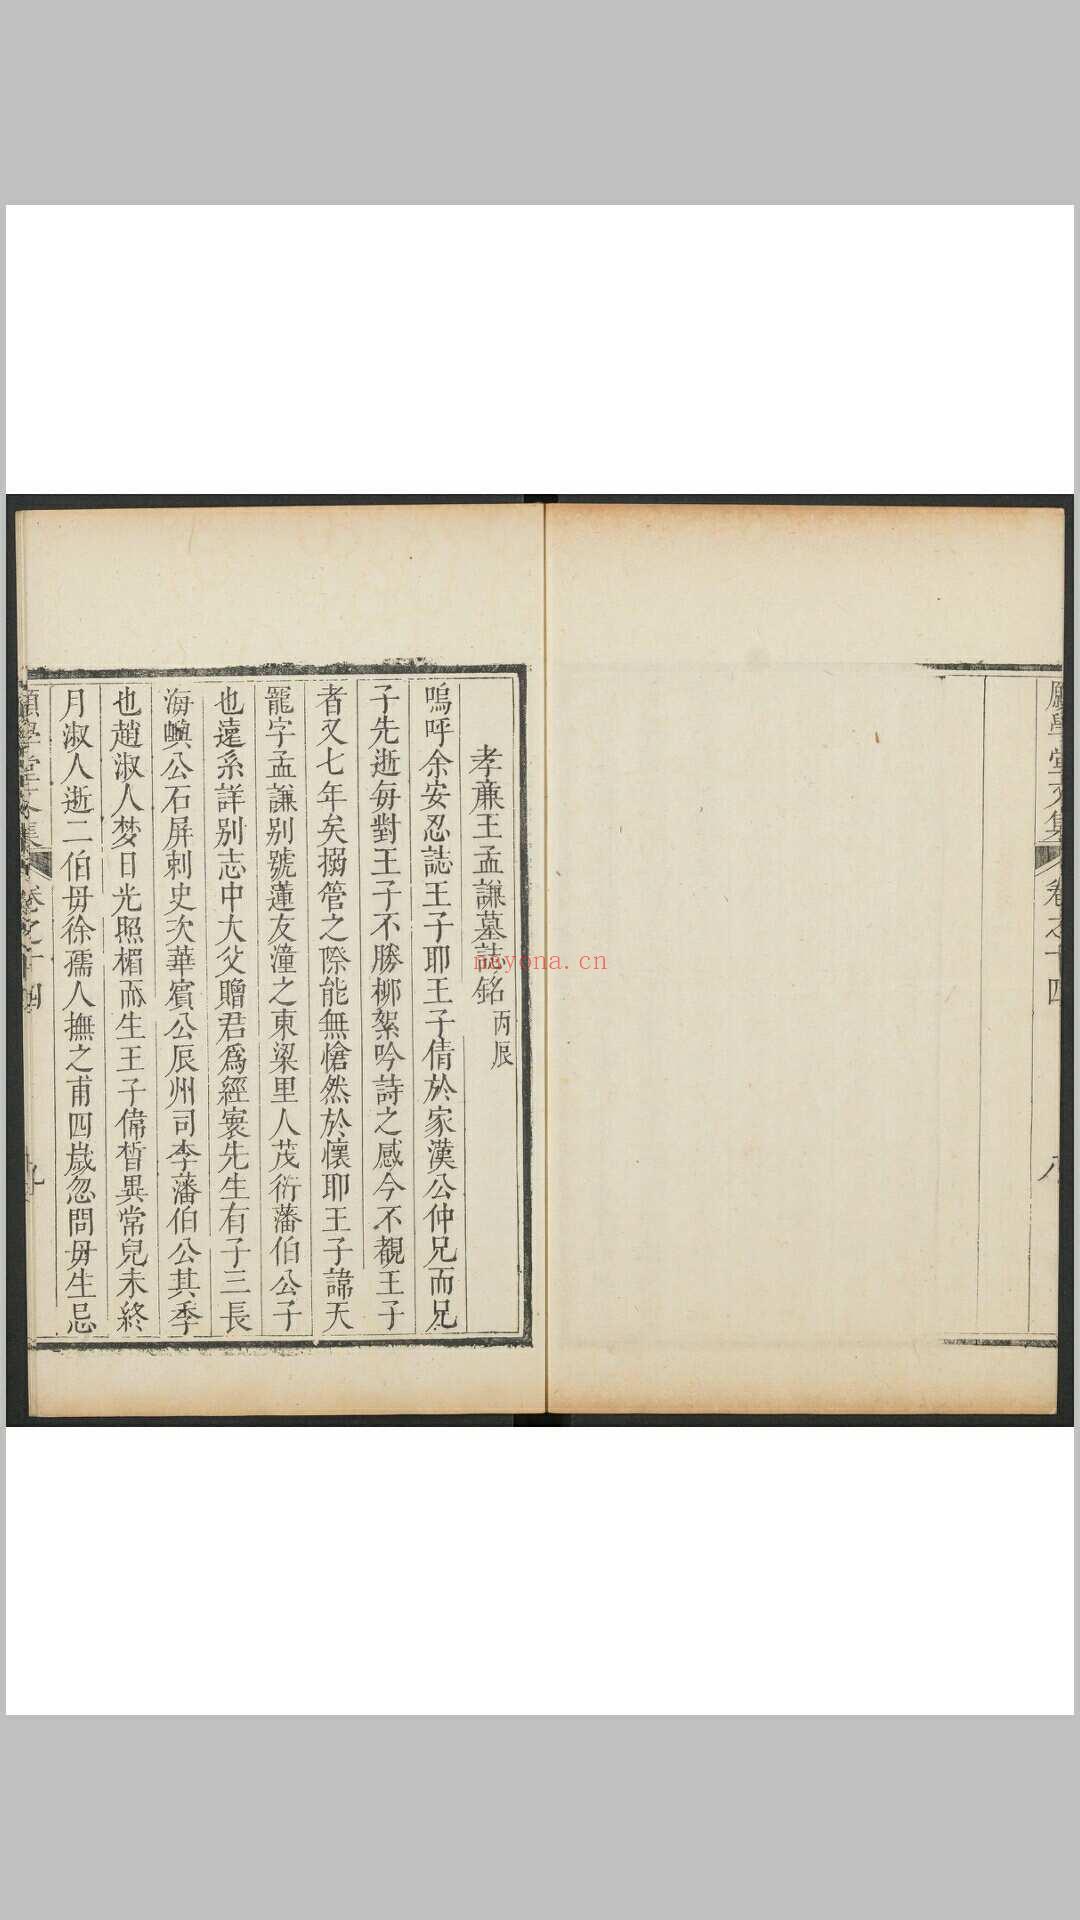 願學堂文集
卷之十四
八
孝亷王孟謙墓誌銘 丙辰
嗚呼余安忍誌王子耶王子倩於家漢公仲兄而兄
子先逝每對王子不勝柳絮吟詩之感今不覩王子
者又七年矣搦管之際能無愴然於懷耶王子諱天
寵字孟謙别號蓮友潼之東梁里人茂衍藩伯公子
也遠系詳别志中大父贈君爲經寰先生有子三長
海嶼公石屏刺史次華賓公辰州司李藩伯公其季
也趙淑人梦日光照楣而生王子偉晳異常兒未終
月淑人逝二伯毋徐孺人撫之甫四歲忽問毋生忌
願學堂文集
卷之十四
九
nayona.cn